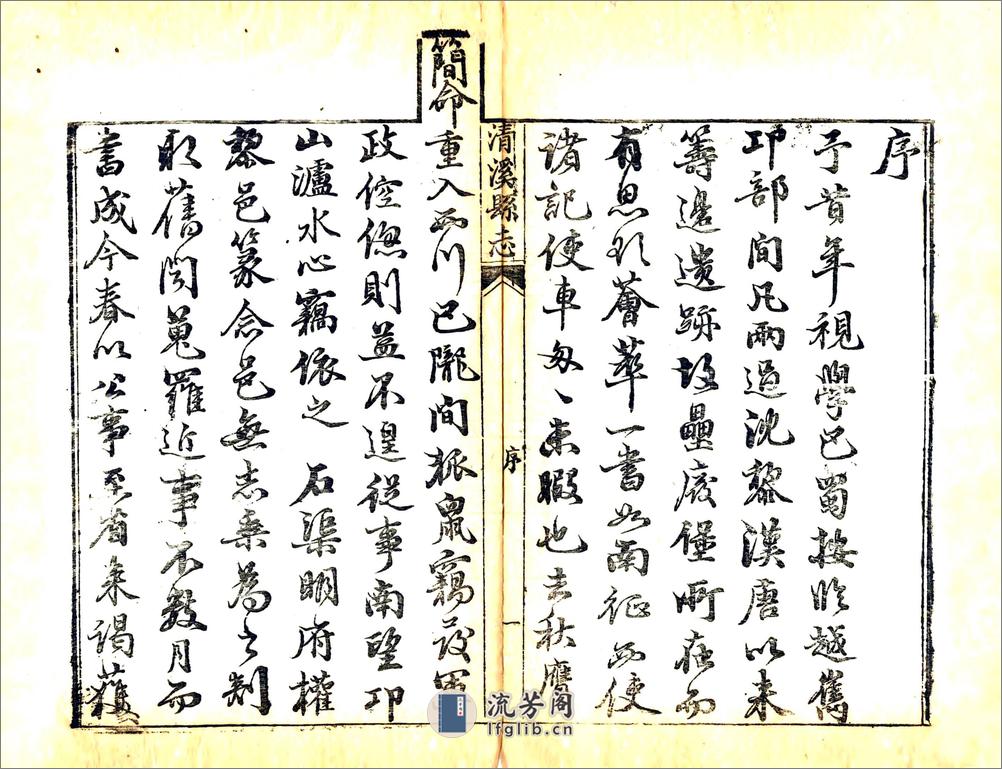 序
予昔年視學巴蜀按臨越嶲
邛部間凡兩過沈黎漢唐以來
籌邊遺跡故壘廢堡所在而
有思欲薈萃一書如南征西使
諸記使車匆〻未暇也去秋應
清溪縣志
序
一
簡命重入西川巴隴間狐鼠竊發軍
政倥傯則益不遑從事南望邛
山瀘水心竊依之 石渠明府權
黎邑篆念邑無志乘為之
取舊聞蒐羅近事不數月而
書成今春以公事至省來謁獲
流芳阁
lfglib.cn